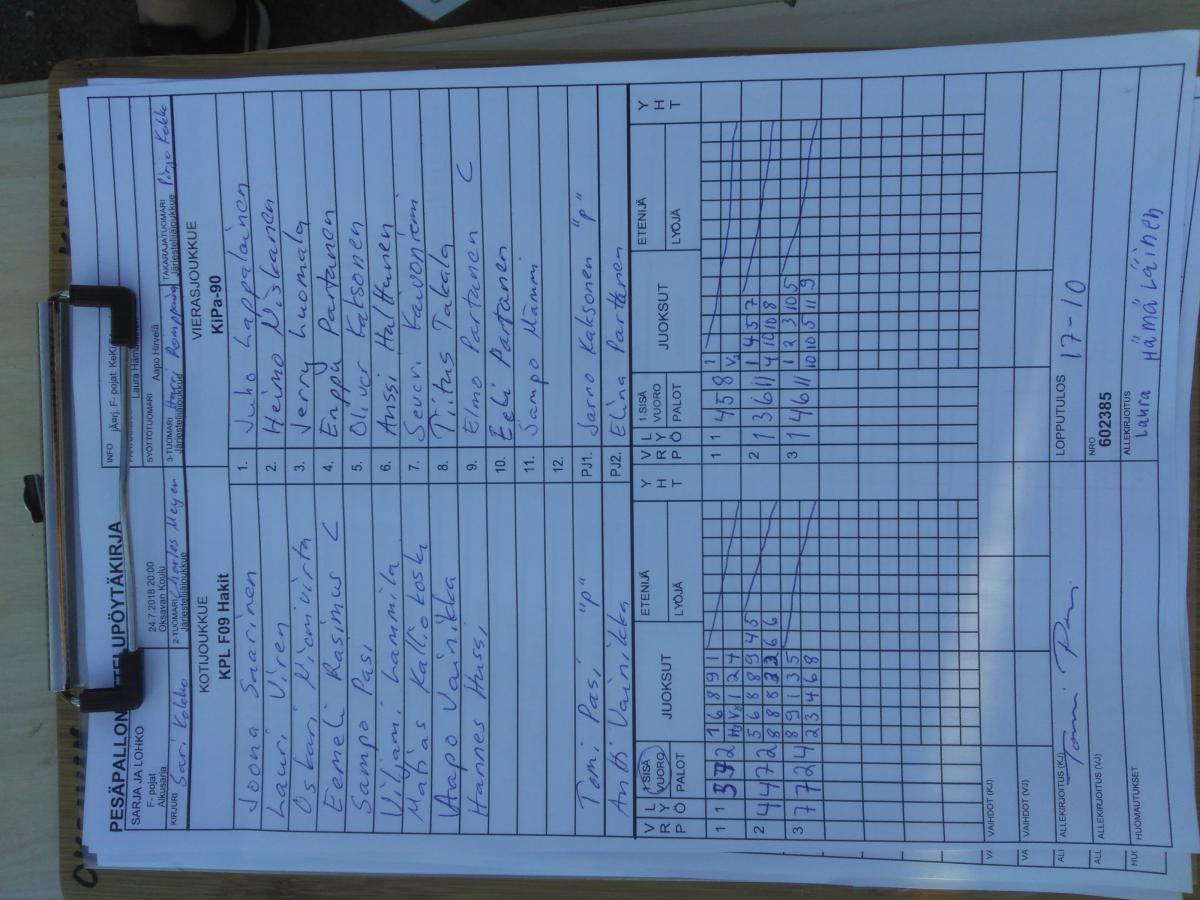 PESÄPALLON OTTELUPÖYTÄKIRJA
SARJA JA LOHKO
F- pojat
Alkusarja
24.7.2018 20:00
Oksavan Koulu
INFO jÄRrj. F- pojat: KeKi
Laura Häm
SYÖTTÖTUOMARI Aapo Hirvelä
KIRJURI Sari Kokko
2-TUOMARI Charles Meyer
Järjestelijäjoukkue
3-TUOMARI Harri Romppainen
Järjestelijäjoukkue
TAKARAJATUOMARI Pirjo Kokko
Järjestelijäjoukkue
KOTIJOUKKUE
KPL F09 Hakit
VIERASJOUKKUE
KiPa-90
Joona Saarinen 1. Juho Lappalainen
Lauri Viren 2. Heimo Niskanen
Oskari Niemivirta 3. Jerry Luomala
Eemeli Rasimus C 4. Enppu Partanen
Sampo Pasi 5. Oliver Katsonen
Viljami Lammila 6. Anssi Halttunen
Matias Kalliokoski 7. Severi Kaivoniemi
Aapo Vainikka 8. Tiitus Takala
Hannes Hussi 9. Elmo Partanen C
10. Eeli Partanen
11. Sampo Mämmi
12.
Tomi Pasi "P" PJ1. Jarno Kaksonen "P"
Antti Vainikka PJ2. Elina Partanen
V R P L Y Ö 1.SISÄ VUORO PALOT JUOKSUT ETENIJÄ LYÖJÄ Y H T
V R P L Y Ö 1.SISÄ VUORO PALOT JUOKSUT ETENIJÄ LYÖJÄ Y H T
1 1 1 6 8 9 1 1 1 4 5 8 1
2 4 4 7 2 5 6 8 8 9 4 5 2 1 3 6 11 1 4 5 7
4 10 10 8
3 7 7 2 4 8 9 1 3 5 3 1 4 6 11 1 2 3 10 5
2 3 4 6 8 10 10 5 11 9
VAIHDOT (KJ)
VAIHDOT (VJ)
ALLEKIRJOITUS (KJ) Tomi Pasi
LOPPUTULOS 17-10
ALLEKIRJOITUS (VJ)
NRO
602385
HUOMAUTUKSET
ALLEKIRJOITUS
Laura Hämäläinen